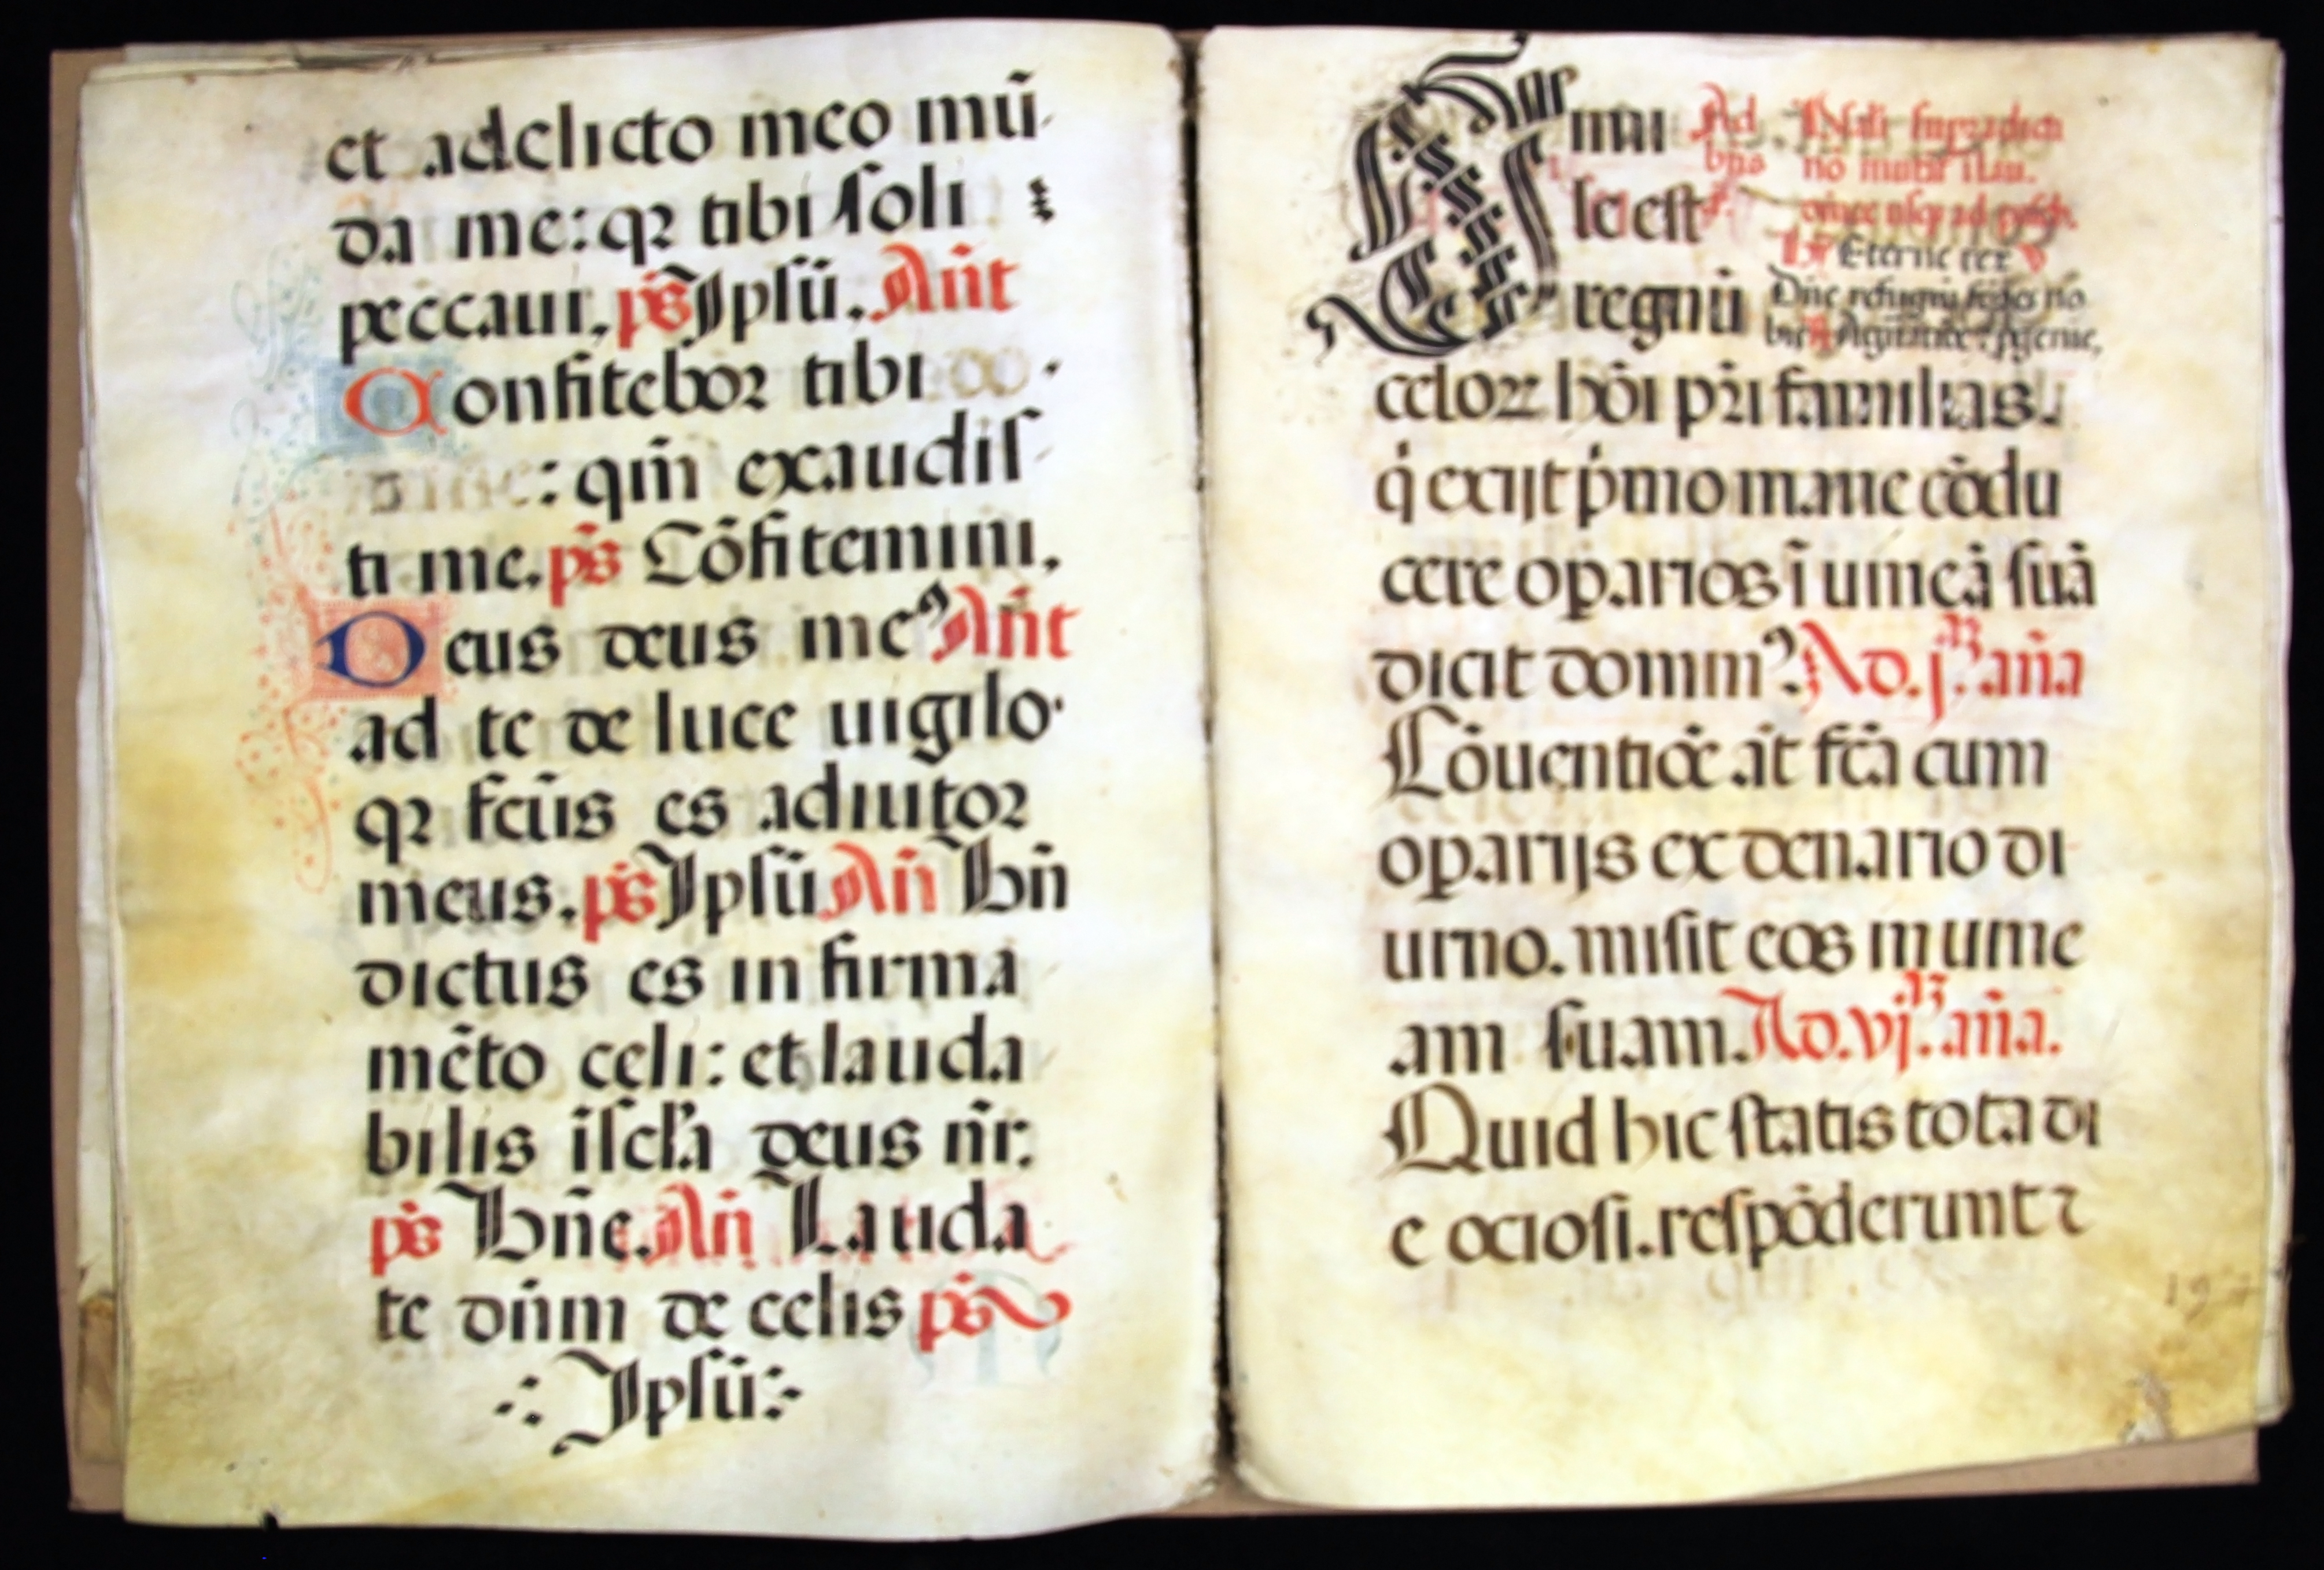 et a delicto meo mū
da me: qꝛ tibi soli
peccaui. ps̄ Ipsū. Añt
Confitebor tibi do
mine: qm̄ exaudis
ti me. ps̄ Cōfitemini.
Deus deus meꝰ Añt
ad te de luce uigilo
qꝛ fc̄us es adiutor
meus. ps̄ Ipsū Añ Bn̄
dictus es in firma
mēto celi: et lauda
bilis ī scl̄a deus nr̄.
ps̄ Bn̄e. Añ Lauda
te dn̄m de celis ps̄
Ipsū
Simi Ad
le est bn̄s no
regnū Eterne rex
Dn̄e refugiū
celoꝝ hōi pr̄i familias
q̇ exijt pͥmo mane cōdu
cere oꝑarios ī uineā suā
dicit dominꝰ. Ad. j. aña
Cōuentiōe āt fc̄a cum
oꝑarijs ex denario di
urno. misit eos in uine
am suam. Ad. vj. aña.
Quid hic statis tota di
e ociosi. respōderunt ⁊